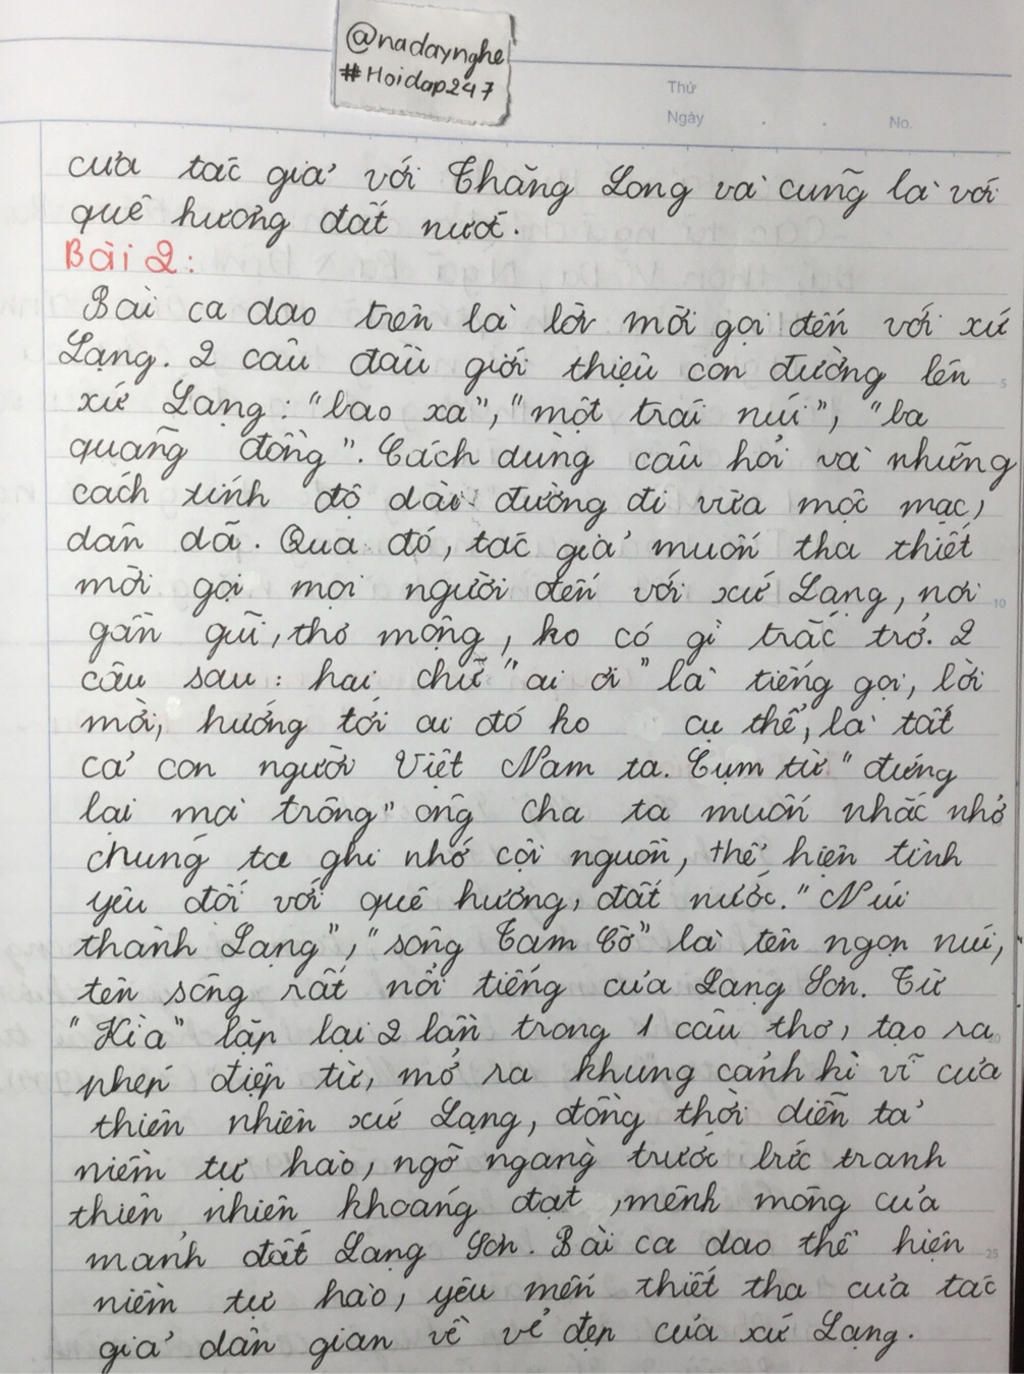 @nadaynghe
#Hoidap247
Thứ
Ngày . . No.
của tác giả với Thăng Long và cũng là với
quê hương đất nước.
Bài 2:
Bài ca dao trên là lời mời gọi đến với xứ
Lạng. 2 câu đầu giới thiệu con đường lên
xứ Lạng: "bao xa", "một trái núi", "ba
quãng đồng". Cách dùng câu hỏi và những
cách tính độ dài đường đi vừa mộc mạc,
dân dã. Qua đó, tác giả muốn tha thiết
mời gọi mọi người đến với xứ Lạng, nơi
gần gũi, thơ mộng, ko có gì trắc trở. 2
câu sau: hai chữ "ai ơi" là tiếng gọi, lời
mời, hướng tới ai đó ko cụ thể, là tất
cả con người Việt Nam ta. Cụm từ "đứng
lại mà trông" ông cha ta muốn nhắc nhở
chúng ta ghi nhớ cội nguồn, thể hiện tình
yêu đối với quê hương, đất nước. "Núi
thành Lạng", "sông Tam Cờ" là tên ngọn núi,
tên sông rất nổi tiếng của Lạng Sơn. Từ
"Kìa" lặp lại 2 lần trong 1 câu thơ, tạo ra
phép điệp từ, mở ra khung cảnh kì vĩ của
thiên nhiên xứ Lạng, đồng thời diễn tả
niềm tự hào, ngỡ ngàng trước bức tranh
thiên nhiên khoáng đạt, mênh mông của
mảnh đất Lạng Sơn. Bài ca dao thể hiện
niềm tự hào, yêu mến thiết tha của tác
giả dân gian về vẻ đẹp của xứ Lạng.